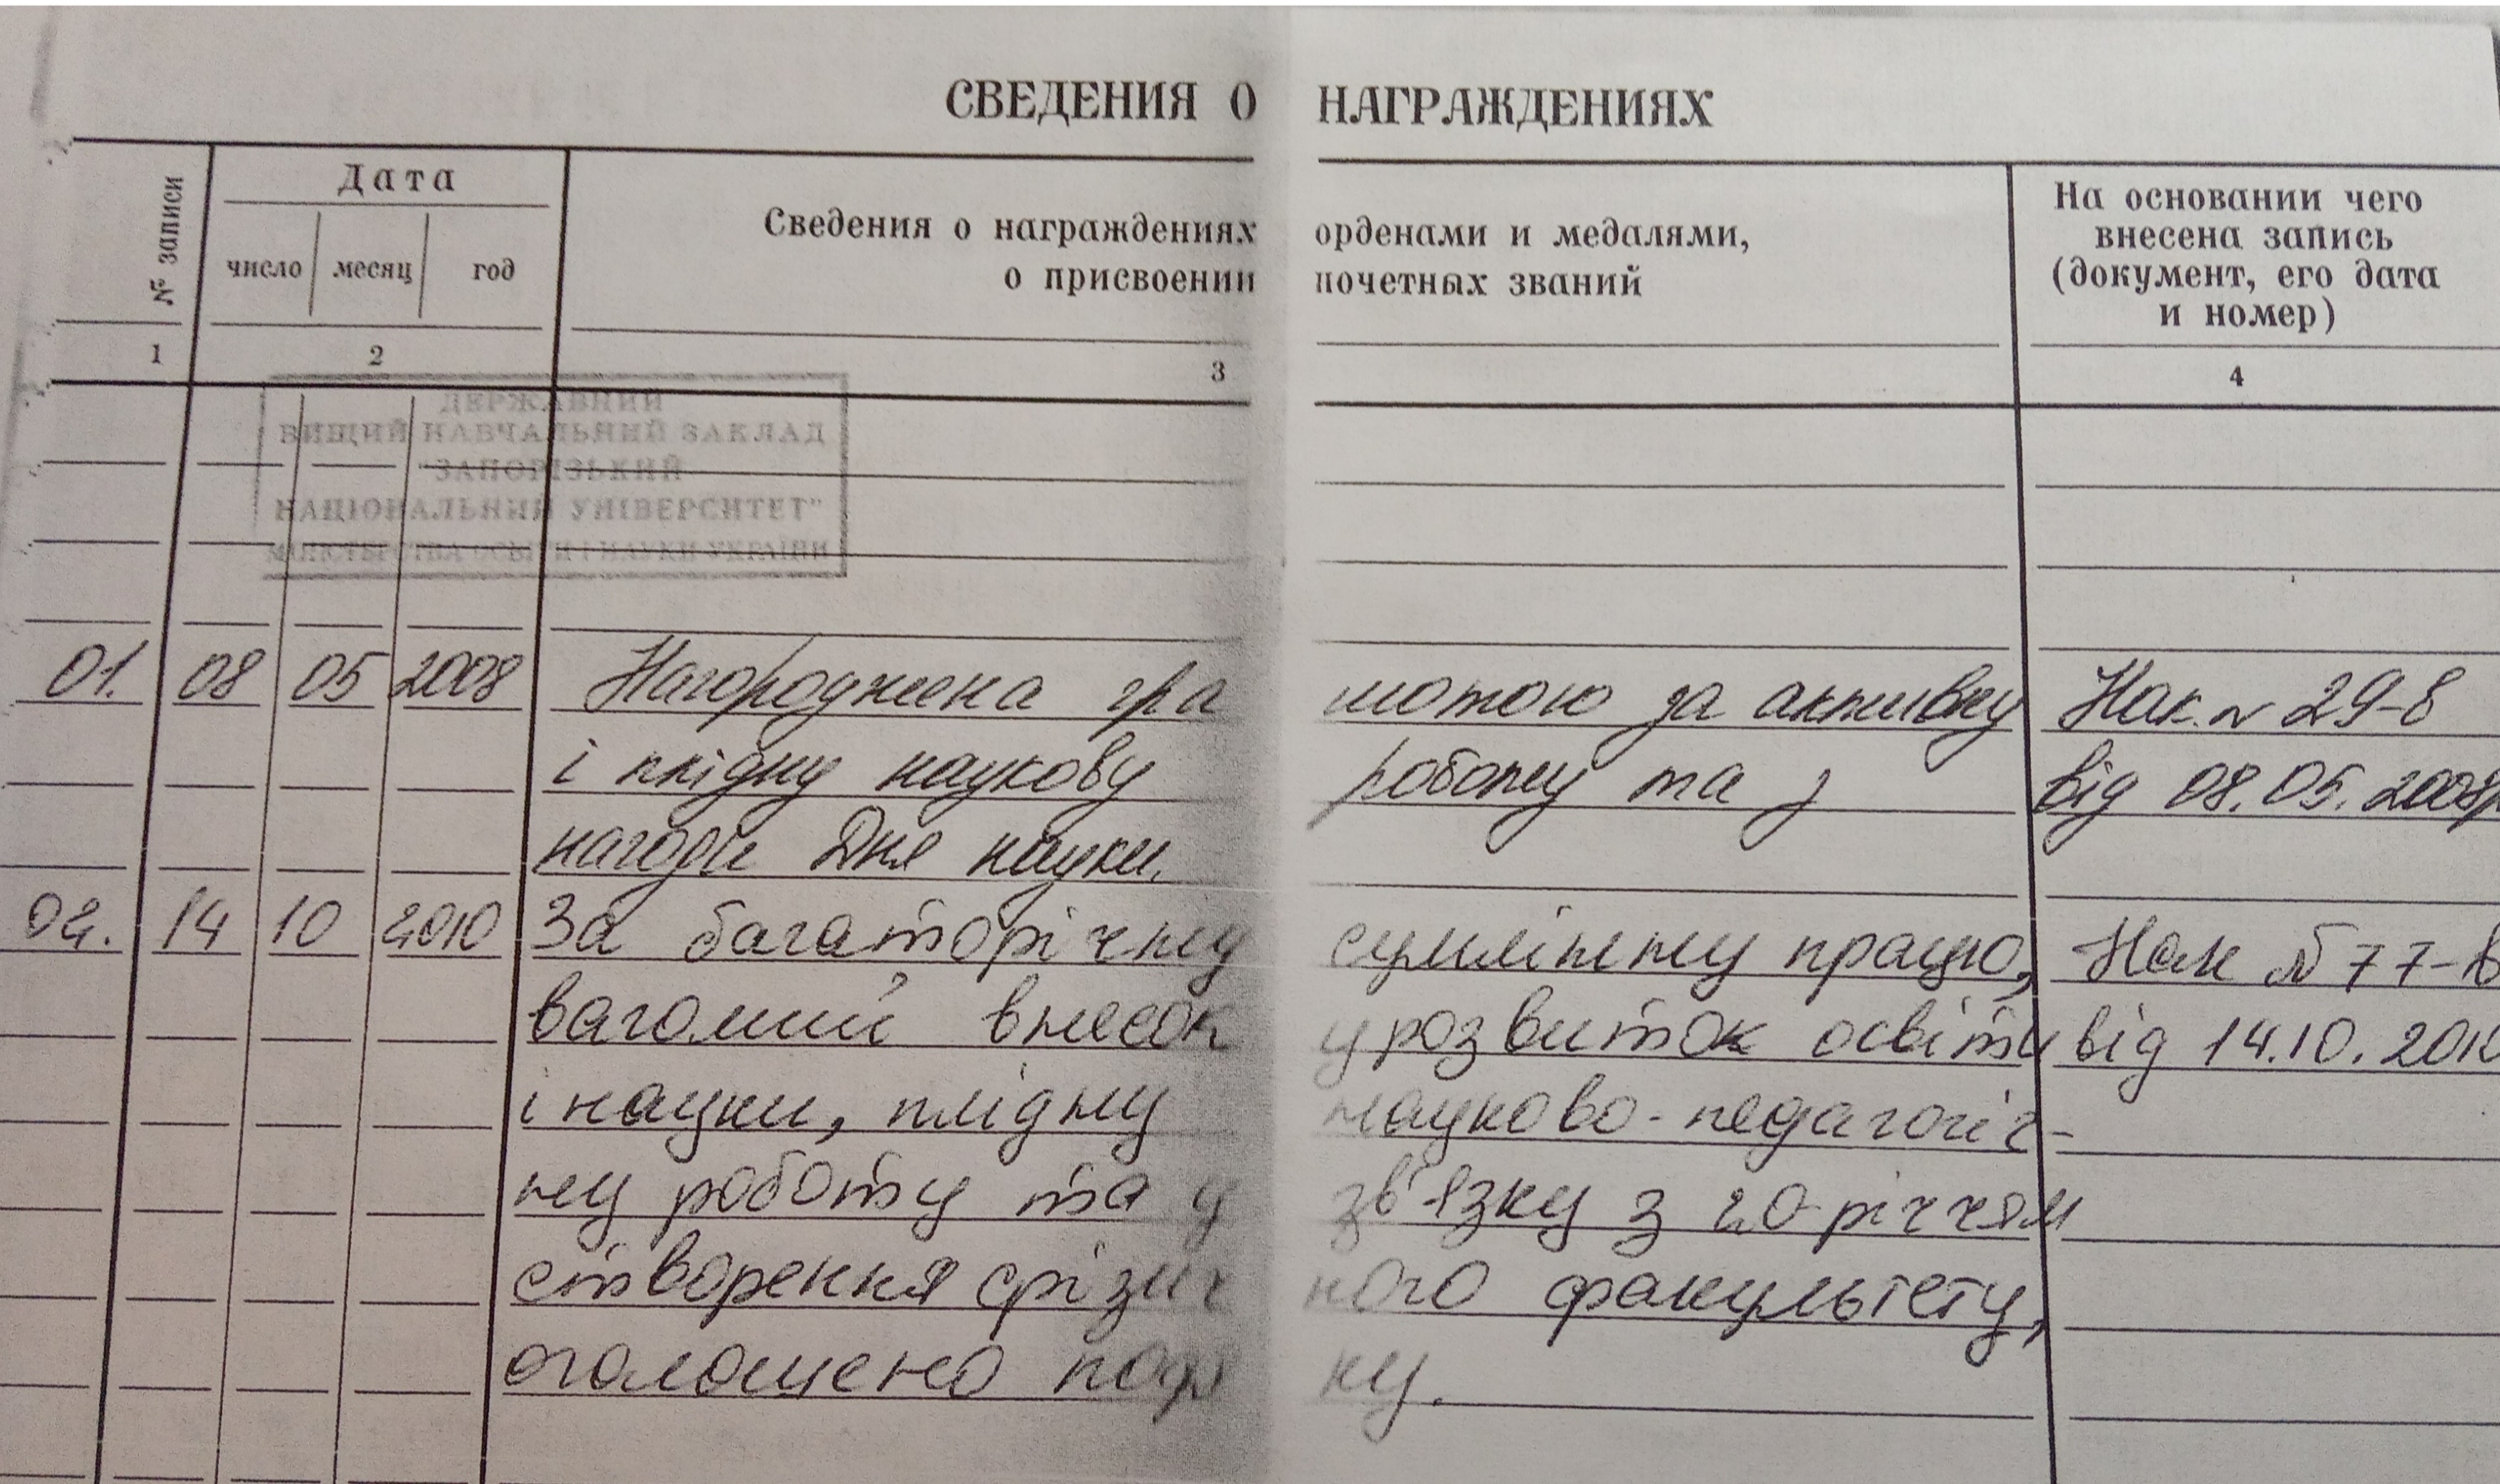 СВЕДЕНИЯ О НАГРАЖДЕНИЯХ
№ записи
Дата
число месяц год
Сведения о награждениях орденами и медалями,
о присвоении почетных званий
На основании чего
внесена запись
(документ, его дата
и номер)
1 2 3 4
ДЕРЖАВНИЙ
ВИЩИЙ НАВЧАЛЬНИЙ ЗАКЛАД
"ЗАПОРІЗЬКИЙ
НАЦІОНАЛЬНИЙ УНІВЕРСИТЕТ"
МІНІСТЕРСТВА ОСВІТИ І НАУКИ УКРАЇНИ
01. 08 05 2008 Нагороджена грамотою за активну Нак. № 29-в
і плідну наукову роботу та з від 08.05.2008р
нагоди Дня науки.
02. 14 10 2010 За багаторічну сумлінну працю, Нак № 77-в
вагомий внесок у розвиток освіти від 14.10.2010
і науки, плідну науково-педагогіч-
ну роботу та у зв'язку з 20-річчям
створення фізичного факультету,
оголошено подяку.